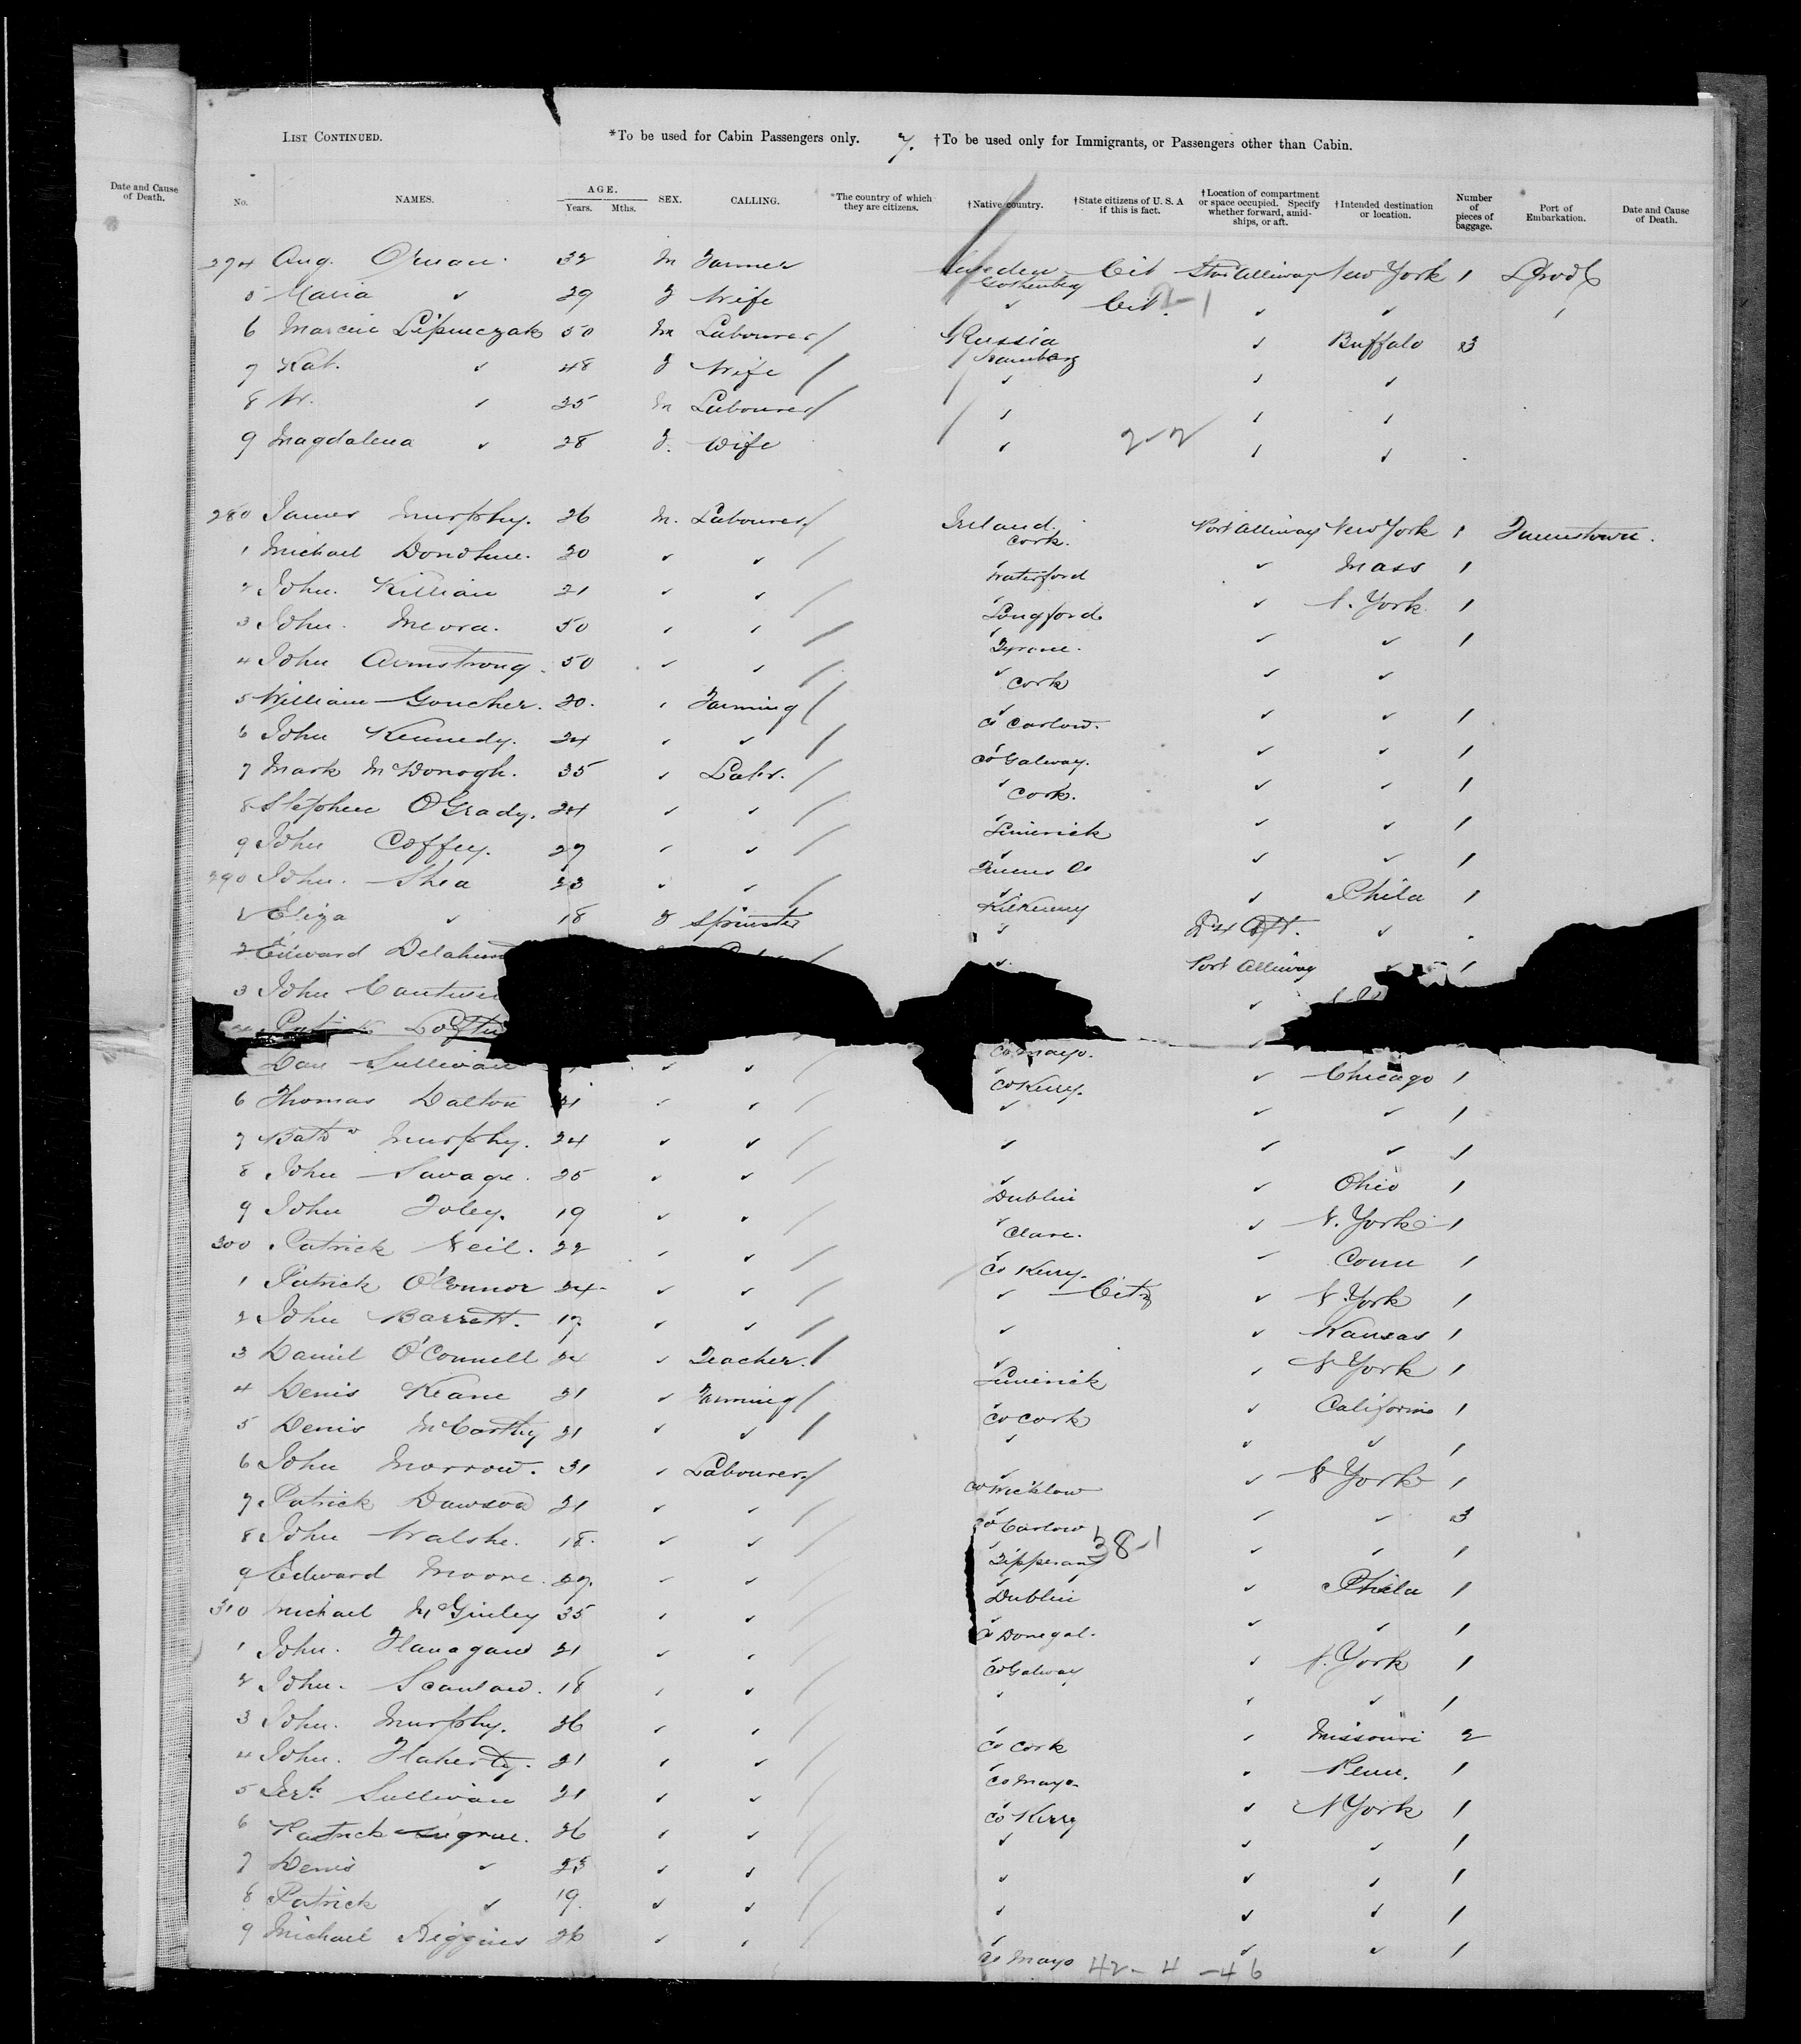 LIST CONTINUED. *To be used for Cabin Passengers only. 7. †To be used only for Immigrants, or Passengers other than Cabin.
Date and Cause of Death. No. NAMES. AGE. Years. Mths. SEX. CALLING. *The country of which they are citizens. †Native country. †State citizens of U. S. A if this is fact. †Location of compartment or space occupied. Specify whether forward, amidships, or aft. †Intended destination or location. Number of pieces of baggage. Port of Embarkation. Date and Cause of Death.
274 Aug. 32 M Farmer Sweden Gothenberg Cit Alleway New York 1 L'pool
5 Maria ✓ 29 F Wife ✓ Cit. 2-1 ✓ ✓
6 50 M Labourer / Russia ✓ Buffalo 3
7 Kat. ✓ 48 F Wife / ✓ ✓ ✓
8 ✓ 25 M Labourer / ✓ ✓ ✓
9 Magdalena ✓ 28 F. Wife ✓ 2-2 ✓ ✓
280 James Murphy. 26 M. Labourer / Ireland. Cork. Port Alleway New York 1 Queenstown.
1 Michael Donohue. 20 ✓ ✓ / Waterford ✓ Mass 1
2 John. Killian 21 ✓ ✓ / Longford ✓ N. York 1
3 John. 50 ✓ ✓ / Tyrone. ✓ ✓ 1
4 John Armstrong. 50 ✓ ✓ / Cork ✓ ✓
5 William Goucher. 20. ✓ Farming / Co Carlow. ✓ ✓ 1
6 John Kennedy. 24 ✓ ✓ / Co Galway. ✓ ✓ 1
7 Mark McDonogh. 35 ✓ Labr. / Cork. ✓ ✓ 1
8 Stephen O'Grady. 24 ✓ ✓ / Limerick ✓ ✓ 1
9 John Coffey. 27 ✓ ✓ / Queens Co ✓ ✓ 1
290 John. Shea 23 ✓ ✓ / Kilkenny ✓ Phila 1
Eliza ✓ 18 F Spinster ✓ Aft. ✓
2 Edward Port Alleway ✓ 1
3 John ✓
Co Mayo. ✓
Dan Sullivan ✓ ✓ / Co Kerry. ✓ Chicago 1
6 Thomas Dalton 21 ✓ ✓ / ✓ ✓ ✓ 1
7 Murphy. 24 ✓ ✓ / ✓ ✓ ✓ 1
8 John Savage. 25 ✓ ✓ / Dublin ✓ Ohio 1
9 John Foley. 19 ✓ ✓ / Clare. ✓ N. York 1
300 Patrick Neil. 22 ✓ ✓ / Co Kerry. ✓ Conn 1
1 Patrick O'Connor 24 ✓ ✓ / ✓ Cit ✓ N York 1
2 John Barrett. 17 ✓ ✓ / ✓ ✓ Kansas 1
3 Daniel O'Connell 24 ✓ Teacher. / Limerick ✓ N York 1
4 Denis Keane 21 ✓ Farming / Co Cork ✓ California 1
5 Denis McCarthy 21 ✓ ✓ / ✓ ✓ ✓ 1
6 John Morrow. 31 ✓ Labourer / Co Wicklow ✓ N York 1
7 Patrick Dawson 21 ✓ ✓ / Co Carlow ✓ ✓ 3
8 John Walshe. 18. ✓ ✓ / Tipperary 38-1 ✓ ✓ 1
9 Edward Moore. 27. ✓ ✓ / Dublin ✓ Phila 1
310 Michael McGinley 35 ✓ ✓ / Co Donegal. ✓ ✓ 1
1 John. Flanagan 21 ✓ ✓ / Co Galway ✓ N. York 1
2 John. Scanlan. 18 ✓ ✓ / ✓ ✓ ✓ 1
3 John. Murphy. 36 ✓ ✓ / Co Cork ✓ Missouri 2
4 John. Flaherty. 21 ✓ ✓ / Co Mayo ✓ Penn. 1
5 Jerh Sullivan 21 ✓ ✓ / Co Kerry ✓ N York 1
6 Patrick 26 ✓ ✓ / ✓ ✓ ✓ 1
7 Denis ✓ 23 ✓ ✓ / ✓ ✓ ✓ 1
8 Patrick ✓ 19. ✓ ✓ / ✓ ✓ ✓ 1
9 Michael Higgins 26 ✓ ✓ / Co Mayo ✓ ✓ 1
42 - 4 - 46